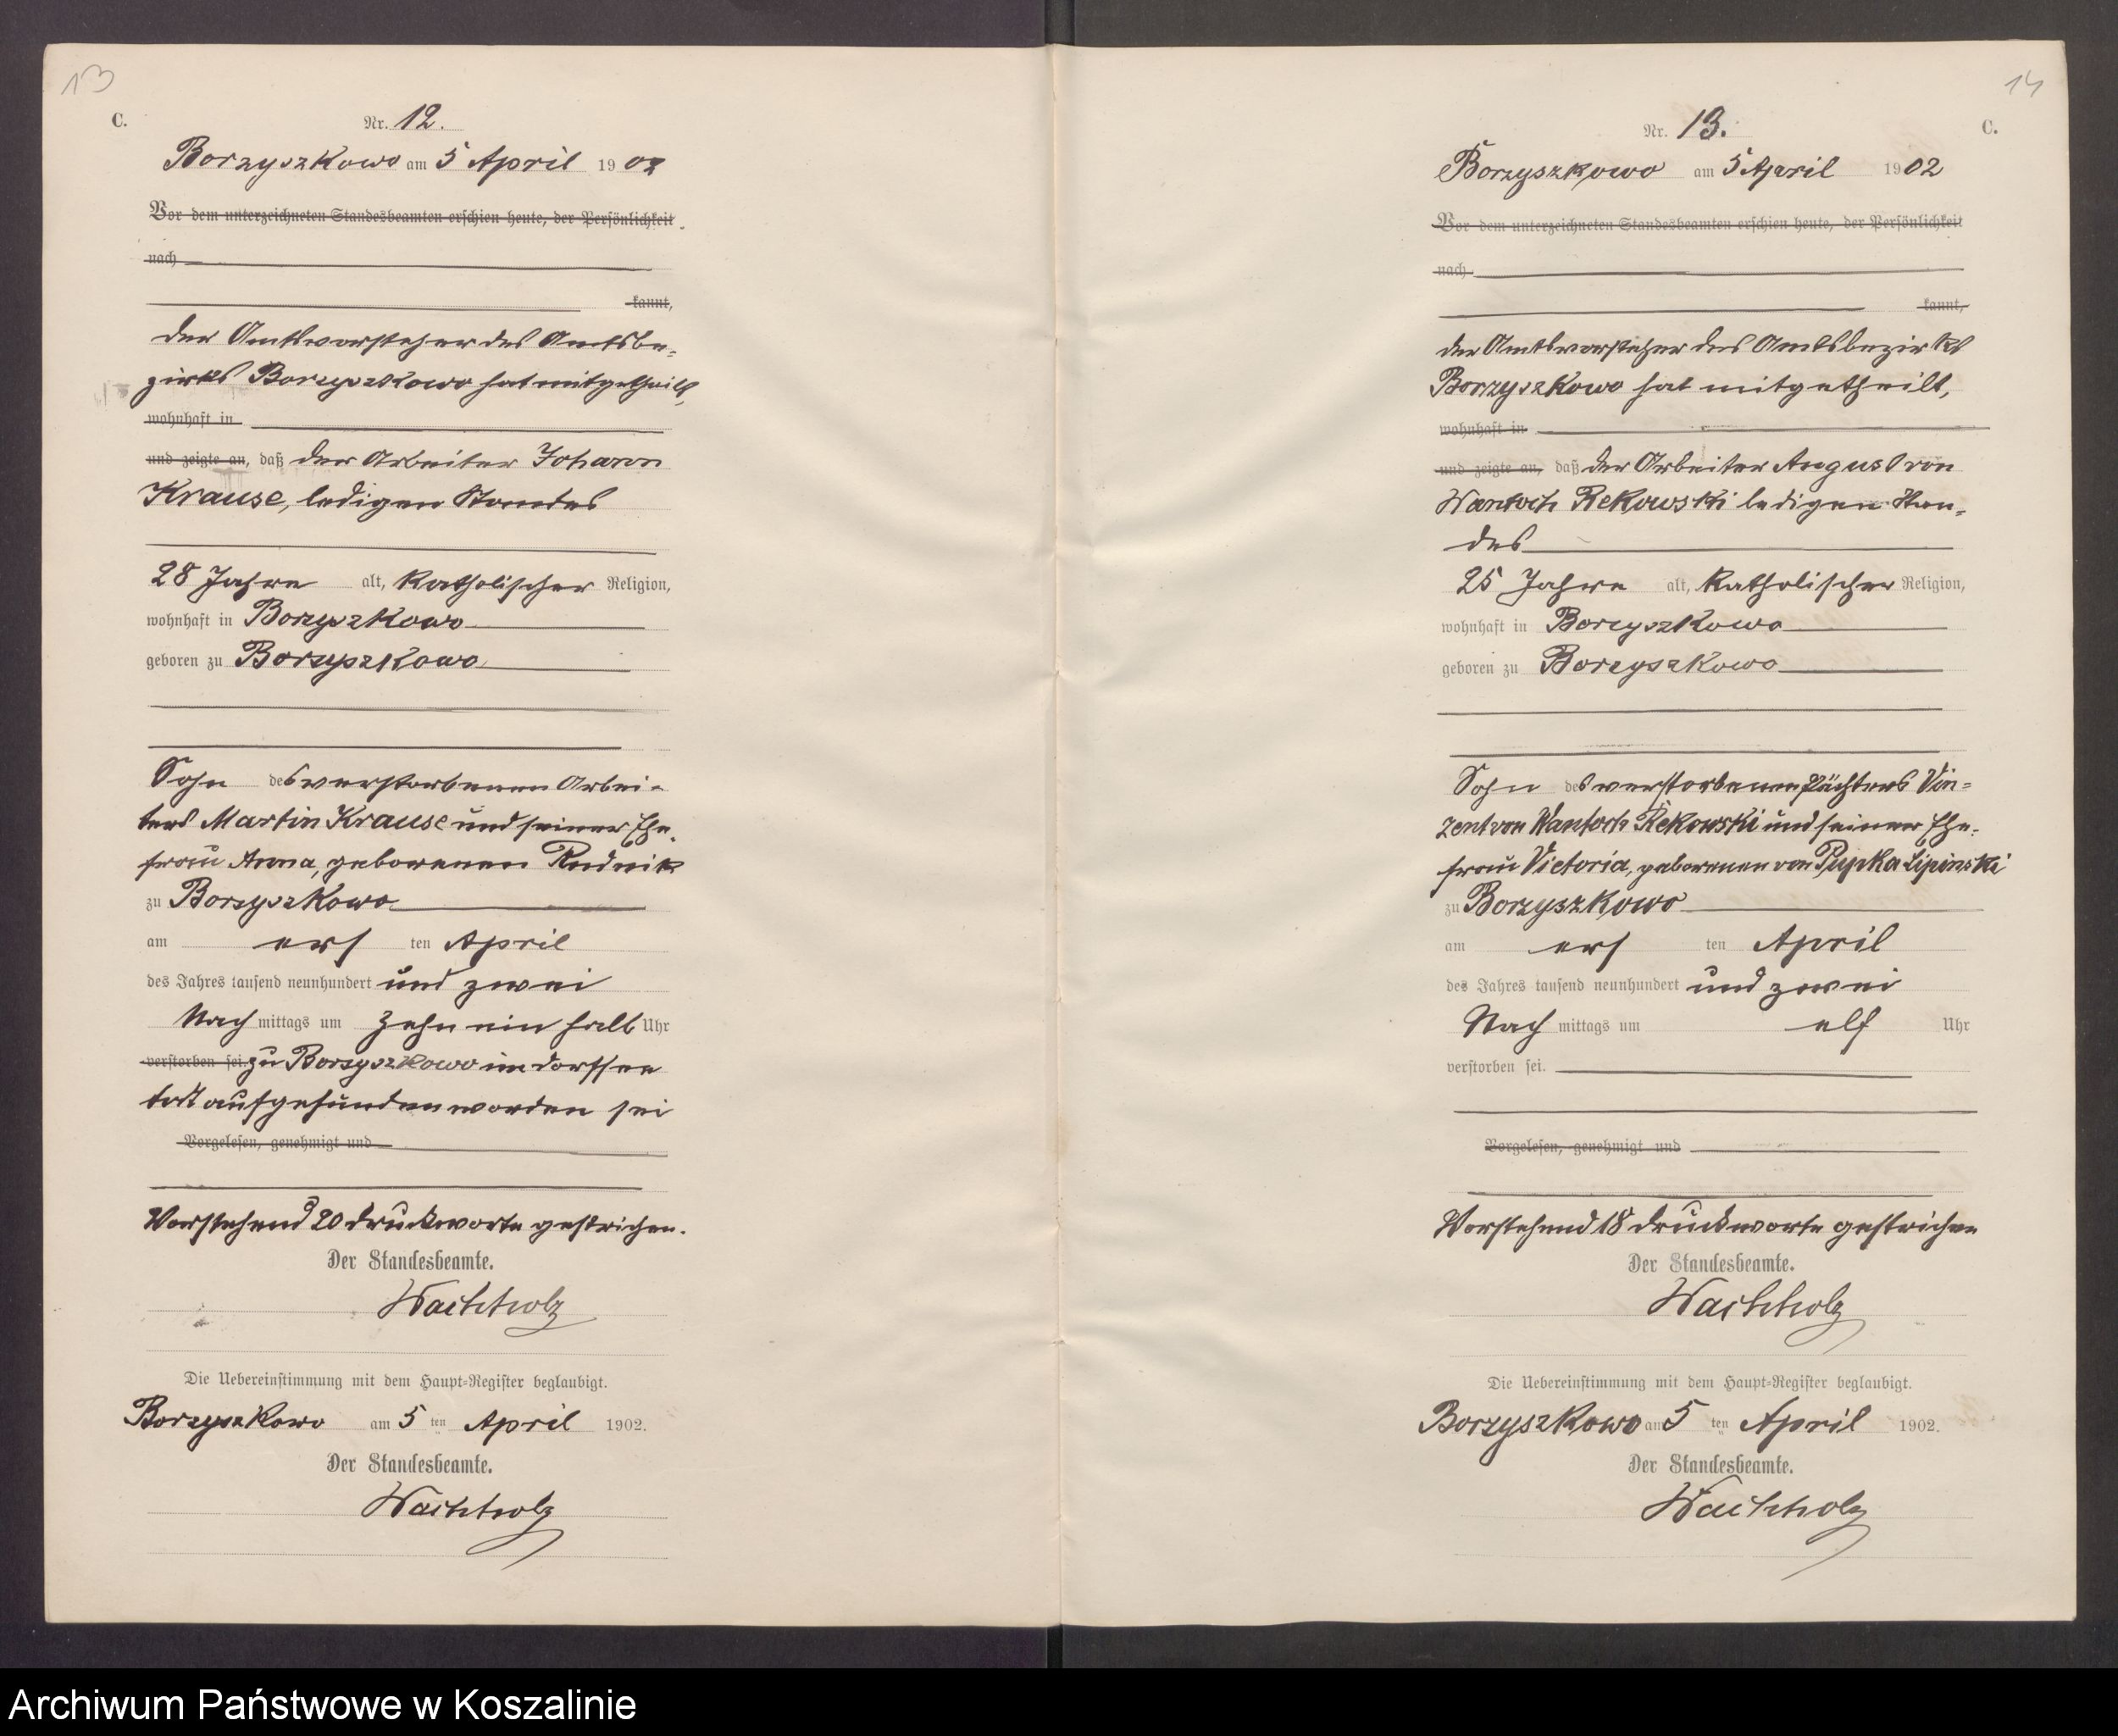 13
C.
Nr. 12.
Borzyszkowo am 5 April 1902
Vor dem unterzeichneten Standesbeamten erschien heute, der Persönlichkeit
nach
kannt,
der Amtsvorsteher des Amtsbe-
zirks Borzyszkowo hat mitgetheilt,
wohnhaft in
und zeigte an, daß der Arbeiter Johann
Krause, ledigen Standes
28 Jahre alt, katholischer Religion,
wohnhaft in Borzyszkowo
geboren zu Borzyszkowo
Sohn des verstorbenen Arbei-
ters Martin Krause und seiner Ehe-
frau Anna, geborenen Rudnik
zu Borzyszkowo
am ers ten April
des Jahres tausend neunhundert und zwei
Nach mittags um zehn ein halb Uhr
verstorben sei. zu Borzyszkowo im Dorfsee
tot aufgefunden worden sei
Vorgelesen, genehmigt und
Vorstehend 20 Druckworte gestrichen.
Der Standesbeamte.
Wachholz
Die Uebereinstimmung mit dem Haupt-Register beglaubigt.
Borzyszkowo am 5 ten April 1902.
Der Standesbeamte.
Wachholz
14
Nr. 13.
C.
Borzyszkowo am 5 April 1902
Vor dem unterzeichneten Standesbeamten erschien heute, der Persönlichkeit
nach
kannt,
der Amtsvorsteher des Amtsbezirks
Borzyszkowo hat mitgetheilt,
wohnhaft in
und zeigte an, daß der Arbeiter August von
Wantoch Rekowski ledigen Stan-
des
25 Jahre alt, katholischer Religion,
wohnhaft in Borzyszkowo
geboren zu Borzyszkowo
Sohn des verstorbenen Pächters Vin-
zent von Wantoch Rekowski und seiner Ehe-
frau Victoria, geborenen von Pupka Lipinski
zu Borzyszkowo
am ers ten April
des Jahres tausend neunhundert und zwei
Nach mittags um elf Uhr
verstorben sei.
Vorgelesen, genehmigt und
Vorstehend 18 Druckworte gestrichen
Der Standesbeamte.
Wachholz
Die Uebereinstimmung mit dem Haupt-Register beglaubigt.
Borzyszkowo am 5 ten April 1902.
Der Standesbeamte.
Wachholz
Archiwum Państwowe w Koszalinie